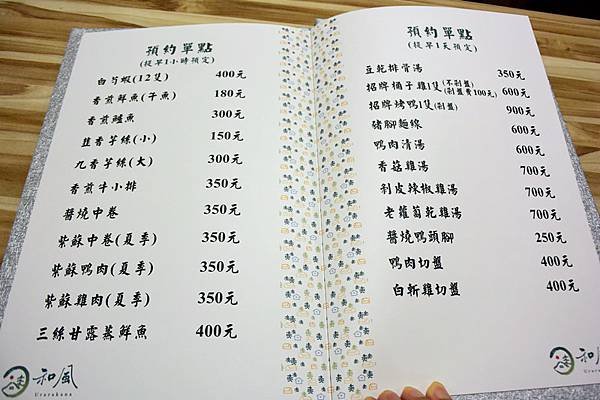 預約單點
(提早1小時預定)
白芍蝦(12隻) 400元
香煎鮮魚(午魚) 180元
香煎鱸魚 300元
韭香芋絲(小) 150元
九香芋絲(大) 300元
香煎牛小排 350元
醬燒中卷 350元
紫蘇中卷(夏季) 350元
紫蘇鴨肉(夏季) 350元
紫蘇雞肉(夏季) 350元
三絲甘露蒸鮮魚 400元
和風
Urarakana
預約單點
(提早1天預定)
豆乾排骨湯 350元
招牌桶子雞1隻(不剁盤)(剁盤費100元) 600元
招牌烤鴨1隻(剁盤) 900元
豬腳麵線 600元
鴨肉清湯 600元
香菇雞湯 700元
剝皮辣椒雞湯 700元
老蘿蔔乾雞湯 700元
醬燒鴨頭腳 250元
鴨肉切盤 400元
白斬雞切盤 400元
和風